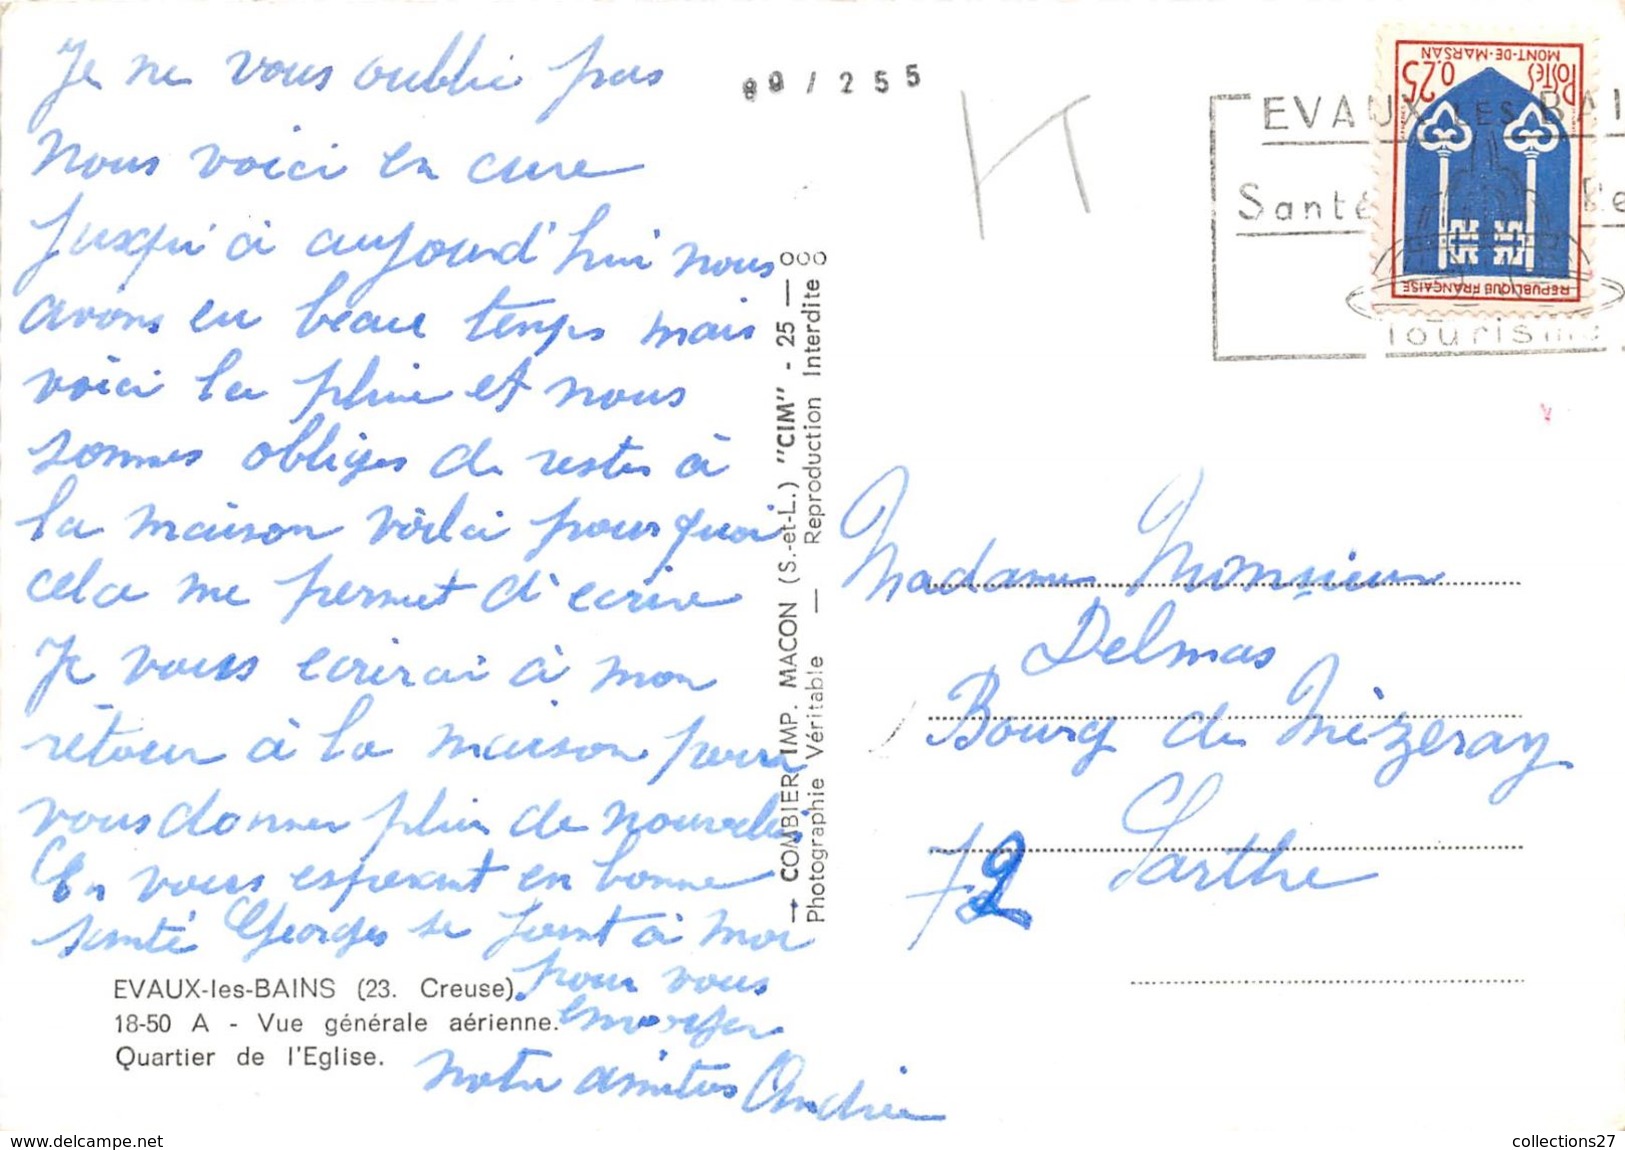 Je ne vous oublie pas
Nous voici en cure
Jusqu'à aujourd'hui nous
avons eu beau temps mais
voici la pluie et nous
sommes obliges de rester à
la maison voila pourquoi
cela me permet d'ecrire
Je vous ecrirai à mon
retour à la maison pour
vous donner plus de nouvelles
En vous esperant en bonne
santé Georges se joint à moi
pour vous
envoyer
notre amities Andrée
EVAUX-les-BAINS (23. Creuse)
18-50 A - Vue générale aérienne.
Quartier de l'Eglise.
89 / 255
→ COMBIER IMP. MACON (S.-et-L.) "CIM" - 25 —
Photographie Véritable — Reproduction Interdite
EVAUX LES BAI
Santé Re
Tourisme
POSTES
0,25
MONT-DE-MARSAN
REPUBLIQUE FRANÇAISE
Madame Monsieur
Delmas
Bourg de Mézeray
72 Sarthe
www.delcampe.net
collections27